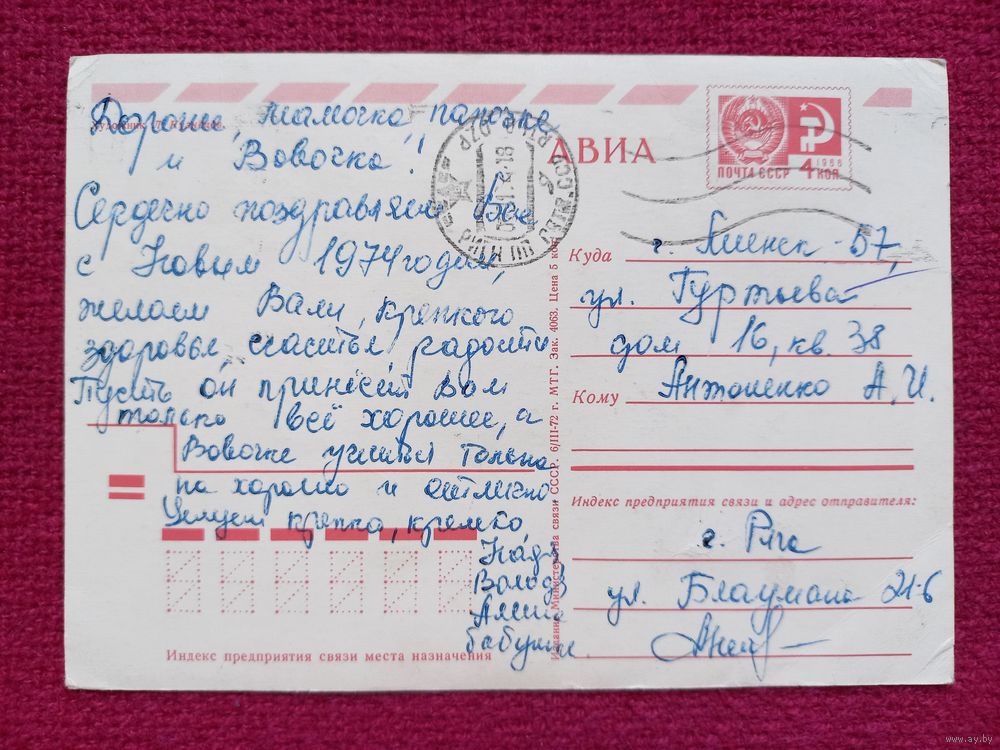 Дорогие, мамочка папочка
и Вовочка!
Сердечно поздравляем Вас
с Новым 1974 годом,
желаем Вам, крепкого
здоровья, счастья радости
Пусть он принесёт Вам
только всё хорошее, а
Вовочке учиться только
на хорошо и отлично
Целуем крепко, крепко
Надя
Володя
Алёша
бабушка.
Индекс предприятия связи места назначения
Издание Министерства связи СССР. 6/III-72 г. МТГ. Зак. 4063. Цена 5 коп.
АВИА
ПОЧТА СССР 4 КОП
1966
Куда г. Минск-57,
ул. Гуртьева
дом 16, кв. 38
Кому Антоненко А.И.
Индекс предприятия связи и адрес отправителя:
г. Рига
ул. Блаумана 21-6
www.ay.by